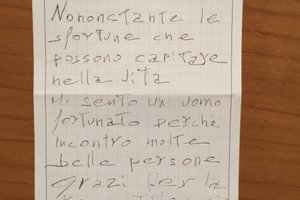 Nononstante le
sfortune che
possono capitare
nella vita
Mi sento un uomo
fortunato perche
incontro molte
belle persone
grazi per la